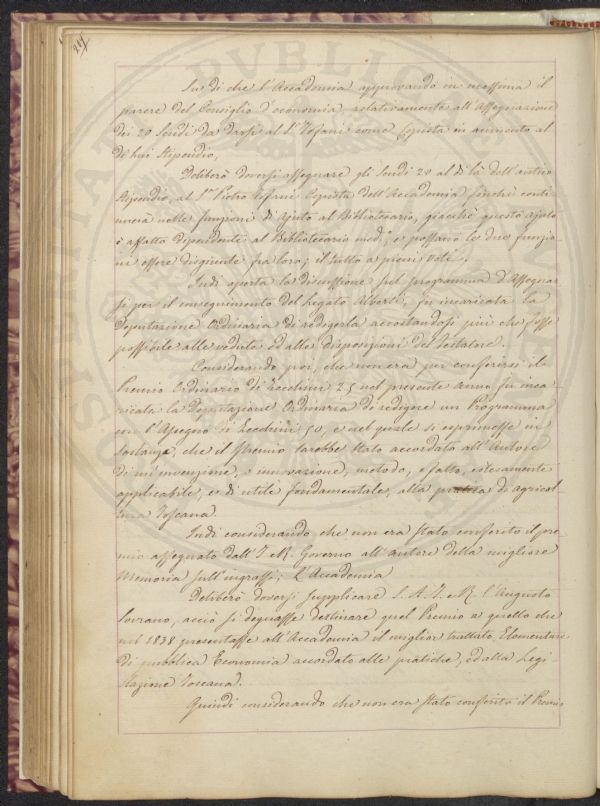 214
Su di che l'Accademia approvando in massima il
parere del Consiglio d'economia relativamente all'Assegnazione
dei 20 Scudi da darsi al Sr. Tofani come Copista in aumento al
di lui Stipendio,
Deliberò doversi assegnare gli Scudi 20 al di là dell'antico
Stipendio, al Sr. Pietro Tofani Copista dell'Accademia finché conti-
nuerà nelle funzioni di Ajuto al Bibliotecario, giacché questo Ajuto
è affatto dipendente al Bibliotecario med.o, e possano le due funzio-
ni essere disgiunte fra loro; il tutto a pieni Voti.
Indi aperta la discussione sul programma d'Assegnar-
si per il conseguimento del Legato Alberti, fu incaricata la
Deputazione Ordinaria di redigerla accostandosi più che fosse
possibile alle vedute ed alle disposizioni del Testatore.
Considerando poi, che non era per conferirsi il
Premio Ordinario di Zecchini 25 nel presente Anno, fu inca-
ricata la Deputazione Ordinaria di redigere un Programma
con l'Assegno di Zecchini 50, e nel quale si esprimesse in
sostanza, che il Premio sarebbe stato accordato all'Autore
di un'invenzione, o innovazione, metodo, o fatto, estesamente
applicabile, e di utile fondamentale, alla pratica di agricol-
tura Toscana.
Indi considerando, che non era stato conferito il pre-
mio assegnato dall'I. e R. Governo all'autore della migliore
Memoria sull'ingrassi; L'Accademia
Deliberò doversi supplicare S. A. I. e R. l'Augusto
Sovrano, acciò si degnasse destinare quel Premio a quello che
nel 1838 presentasse all'Accademia il miglior trattato Elementare
di pubblica Economia accordato alle pratiche, ed alla Legi-
slazione Toscana.
Quindi considerando che non era stato conferito il Premio